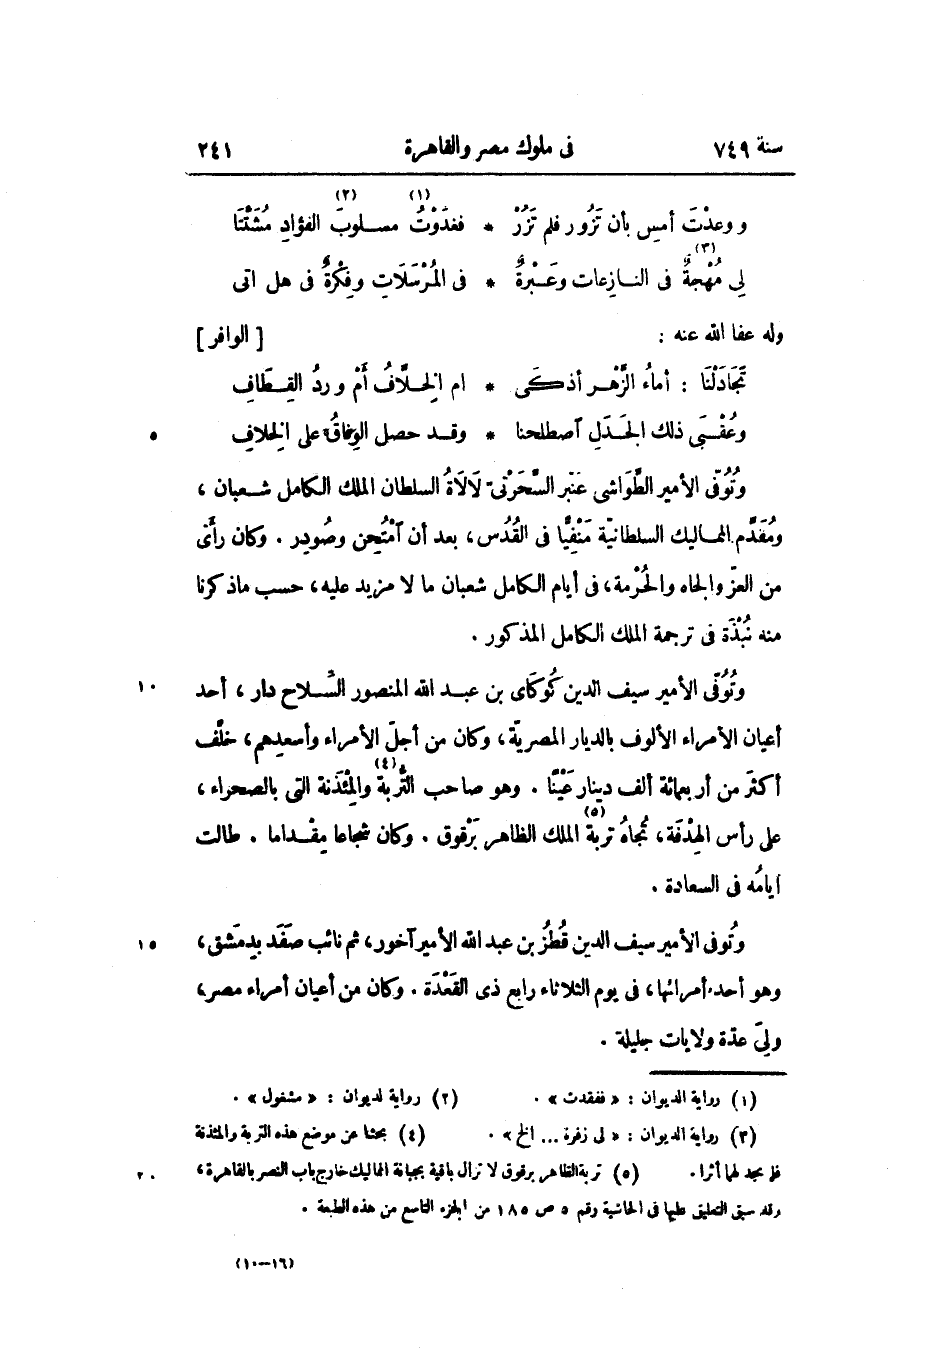 سنة ٧٤٩ فى ملوك مصر والقاهرة ٢٤١
(١) (٢)
ووعدْتَ أمسِ بأن تَزُور فلم تَزُرْ * فغدَوْتُ مسلوبَ الفؤادِ مُشَتَّتَا
(٣)
لِى مُهْجةٌ فى النازِعات وعَبْرةٌ * فى المُرْسَلاتِ وفِكْرةٌ فى هل اتى
وله عفا الله عنه : [الوافر]
تَجَادَلْنَا : أماءُ الزَّهْر أذكَى * ام الخِلَّافُ أمْ وردُ القِطَافِ
وعُقْبَى ذلك الجَدَلِ آصطلحنا * وقد حصل الوِفاقُ على الخِلافِ
٥
وتُوُفّى الأمير الطَّوَاشى عَنْبر السَّحَرْتىّ لَالَاةُ السلطان الملك الكامل شعبان ،
ومُقَدَّم المماليك السلطانيّة مَنْفِيًّا فى القُدْس، بعد أن آمْتُحِن وصُودِر . وكان رأَى
من العزّ والجاه والحُرْمة، فى أيام الكامل شعبان ما لا مزيد عليه، حسب ماذكرنا
منه نُبْذَة فى ترجمة الملك الكامل المذكور .
وتُوُفّى الأمير سيف الدين كُوكَاى بن عبد الله المنصور السِّلاح دار ، أحد
١٠
أعيان الأمراء الألوف بالديار المصريّة، وكان من أجلّ الأمراء وأسعدِهم، خلَّف
أكثَر من أربعمائة ألف دينار عَيْنًا . وهو صاحب التُّربة والمِئْذنة التى بالصحراء ،
(٤)
على رأس الهِدْفَة، تُجاهُ تربة الملك الظاهر بَرْقوق . وكان شجاعا مِقْداما . طالت
(٥)
أيامُه فى السعادة .
وتُوفى الأمير سيف الدين قُطُزْ بن عبد الله الأمير آخور، ثم نائب صَفَد بِدِمَشْق،
١٥
وهو أحد أمرائها، فى يوم الثلاثاء رابع ذى القَعْدَة . وكان من أعيان أمراء مصر،
ولِىَ عدّة ولايات جليلة .
(١) رواية الديوان : « ففقدت » . (٢) رواية لديوان : « مشغول » .
(٣) رواية الديوان : « لى زفرة ... الخ » . (٤) بحثنا عن موضع هذه التربة والمئذنة
فلم نجد لهما أثرا . (٥) تربة الظاهر برقوق لا تزال باقية بجبانة المماليك خارج باب النصر بالقاهرة ،
٢٠
وقد سبق التعليق عليها فى الحاشية رقم ٥ ص ١٨٥ من الجزء التاسع من هذه الطبعة .
(١٠-١٦)